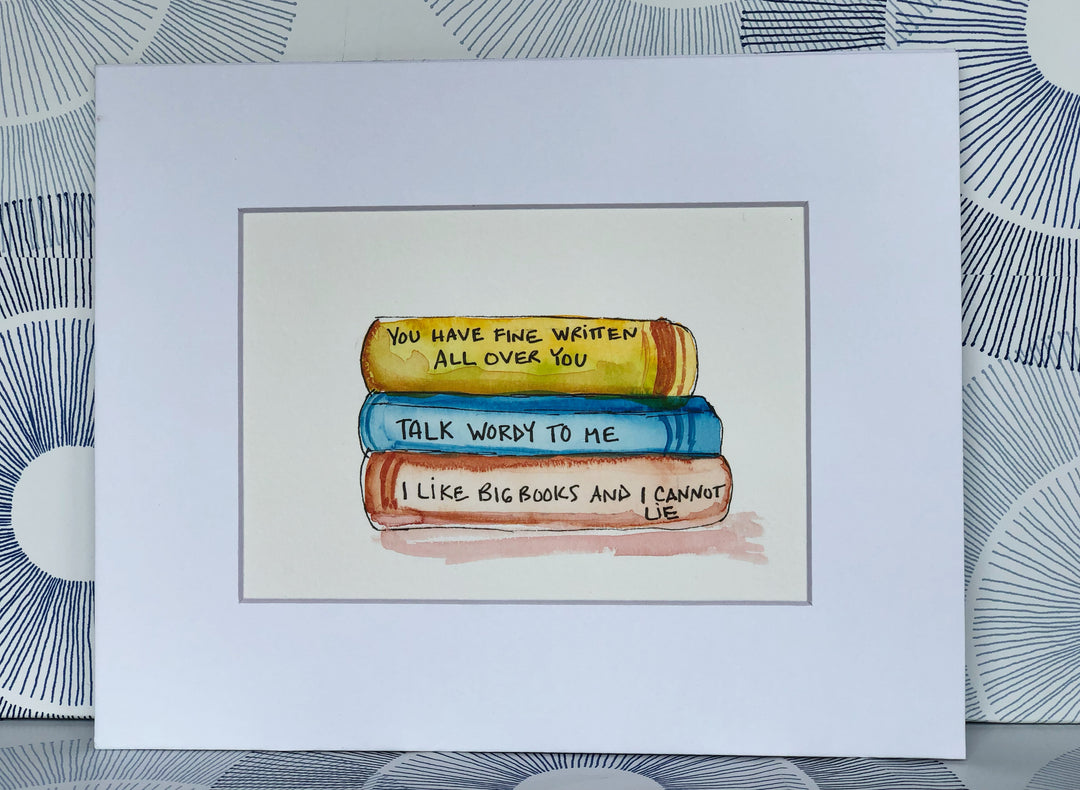 YOU HAVE FINE WRITTEN
ALL OVER YOU
TALK WORDY TO ME
I LIKE BIG BOOKS AND I CANNOT
LIE